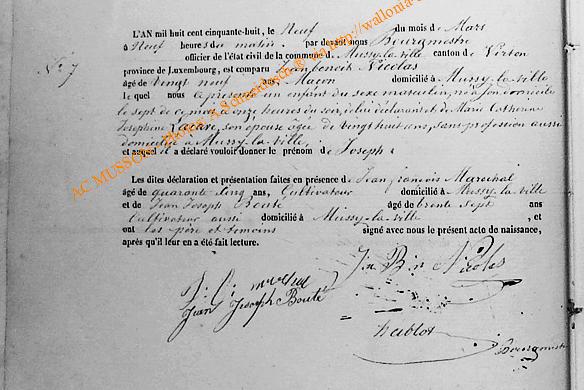 N° 7
L'AN mil huit cent cinquante-huit, le Neuf du mois de Mars
à Neuf heures du matin, par devant nous Bourgmestre
officier de l'état civil de la commune de Mussy-la-ville canton de Virton
province de Luxembourg, est comparu Jean Benoit Nicolas
âgé de vingt neuf ans Maçon domicilié à Mussy-la-ville
le quel nous a présenté un enfant du sexe masculin, né à son domicile
le sept de ce mois à onze heures du soir, de lui déclarant et de Marie Catherine
Josephine Lacave, son epouse âgée de vingt huit ans, sans profession aussi
domiciliée à Mussy-la-ville
et auquel il a déclaré vouloir donner le prénom de Joseph
Les dites déclaration et présentation faites en présence de Jean françois Marechal
âgé de quarante cinq ans, Cultivateur domicilié à Mussy-la-ville
et de Jean Joseph Bouté âgé de trente sept ans
Cultivateur aussi domicilié à Mussy-la-ville, et
ont les père et temoins signé avec nous le présent acte de naissance,
après qu'il leur en a été fait lecture.
Jn Bn Nicolas
Jean Joseph Bouté
Bourgmestre
AC MUSSON - Photos A. Schandeler © via http://wallonia